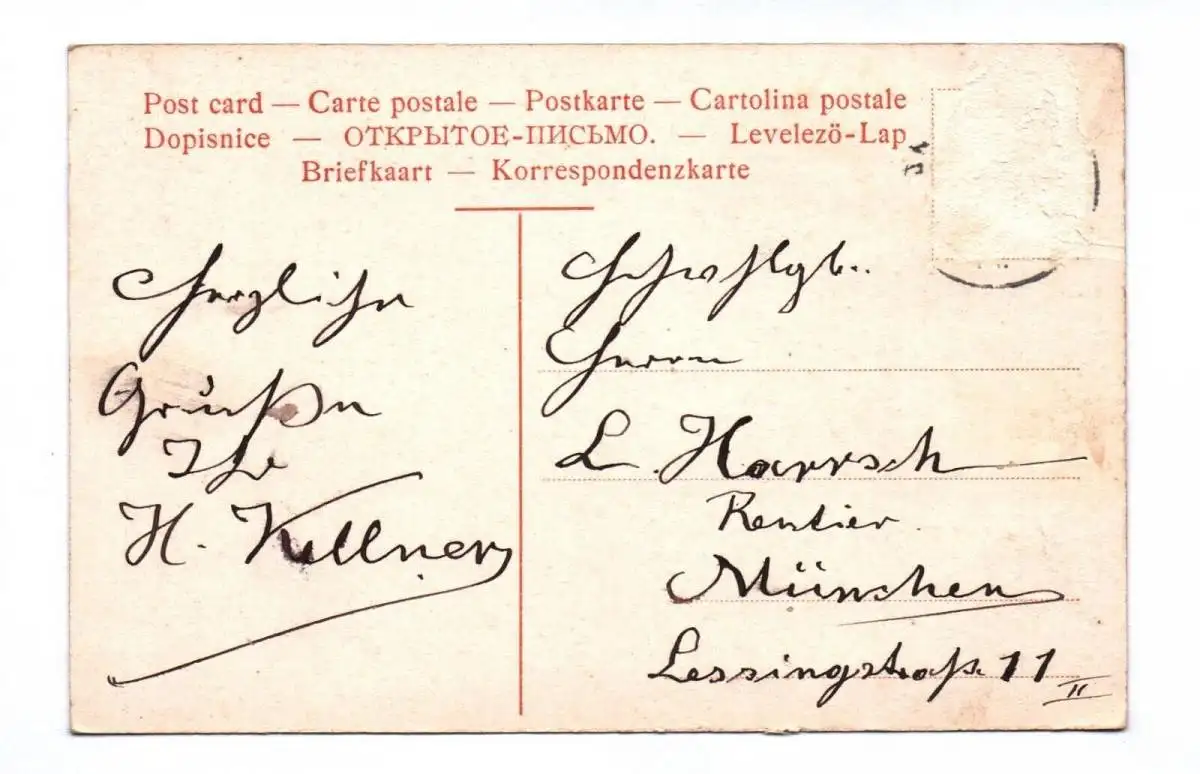 Post card — Carte postale — Postkarte — Cartolina postale
Dopisnice — ОТКРЫТОЕ-ПИСЬМО. — Levelezö-Lap
Briefkaart — Korrespondenzkarte
Herzliche
Grüße
Ihr
H. Kellner
Hochwohlgb..
Herrn
L. Harrsch
Rentier
München
Lessingstraß. 11
II